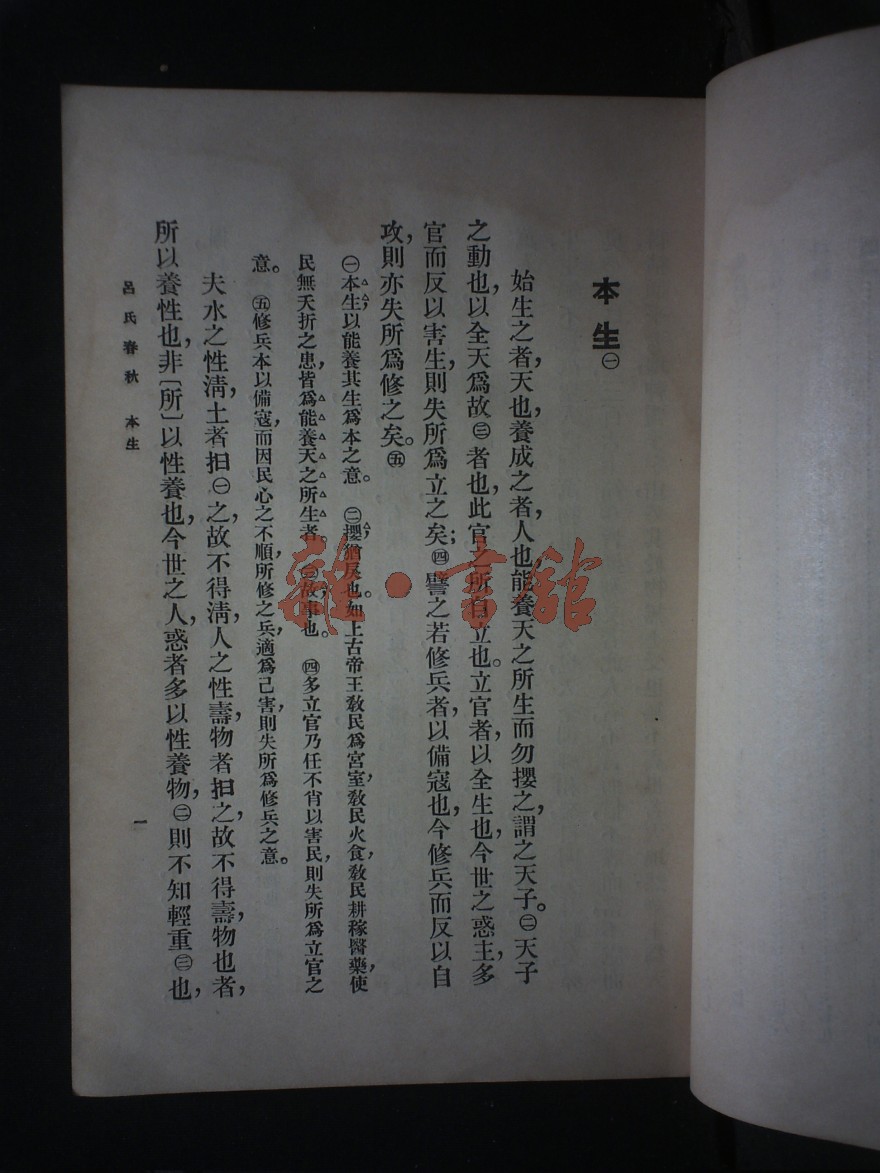 本生㊀
始生之者，天也，養成之者，人也，能養天之所生而勿攖之，謂之天子。㊁天子
之動也，以全天爲故㊂者也，此官之所自立也。立官者，以全生也，今世之惑主，多
官而反以害生，則失所爲立之矣；㊃譬之若修兵者，以備寇也，今修兵而反以自
攻，則亦失所爲修之矣。㊄
㊀本生，以能養其生爲本之意。㊁攖，猶戾也。如上古帝王敎民爲宮室，敎民火食，敎民耕稼醫藥，使
民無夭折之患，皆爲能養天之所生者。㊂故，事也。㊃多立官乃任不肖以害民，則失所爲立官之
意。㊄修兵本以備寇，而因民心之不順，所修之兵，適爲己害，則失所爲修兵之意。
夫水之性淸，土者抇㊀之，故不得淸，人之性壽，物者抇之，故不得壽，物也者，
所以養性也，非〔所〕以性養也，今世之人，惑者多以性養物，㊁則不知輕重㊂也，
呂氏春秋 本生
一
雜·書館